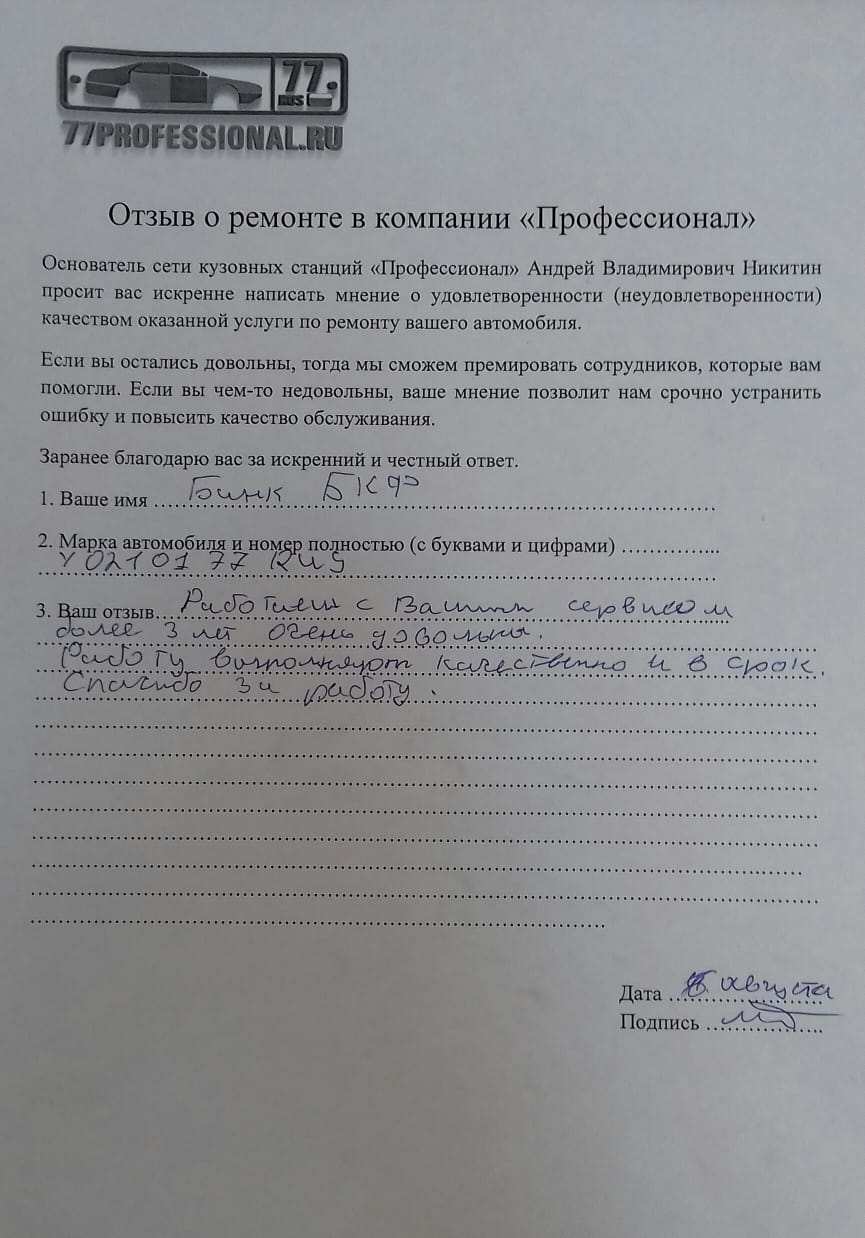 77
RUS
77PROFESSIONAL.RU
Отзыв о ремонте в компании «Профессионал»
Основатель сети кузовных станций «Профессионал» Андрей Владимирович Никитин
просит вас искренне написать мнение о удовлетворенности (неудовлетворенности)
качеством оказанной услуги по ремонту вашего автомобиля.
Если вы остались довольны, тогда мы сможем премировать сотрудников, которые вам
помогли. Если вы чем-то недовольны, ваше мнение позволит нам срочно устранить
ошибку и повысить качество обслуживания.
Заранее благодарю вас за искренний и честный ответ.
1. Ваше имя Банк БКФ
2. Марка автомобиля и номер полностью (с буквами и цифрами)
У 021 01 77 RUS
3. Ваш отзыв Работаем с Вашим сервисом
более 3 лет очень довольны.
Работу выполняют качественно и в срок.
Спасибо за работу.
Дата августа
Подпись